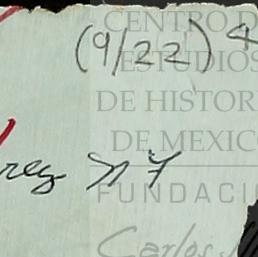 (9/22) 4
CENTRO D
ESTUDIOS
DE HISTOR
DE MEXIC
rez n 7
FUNDACI
Carlos